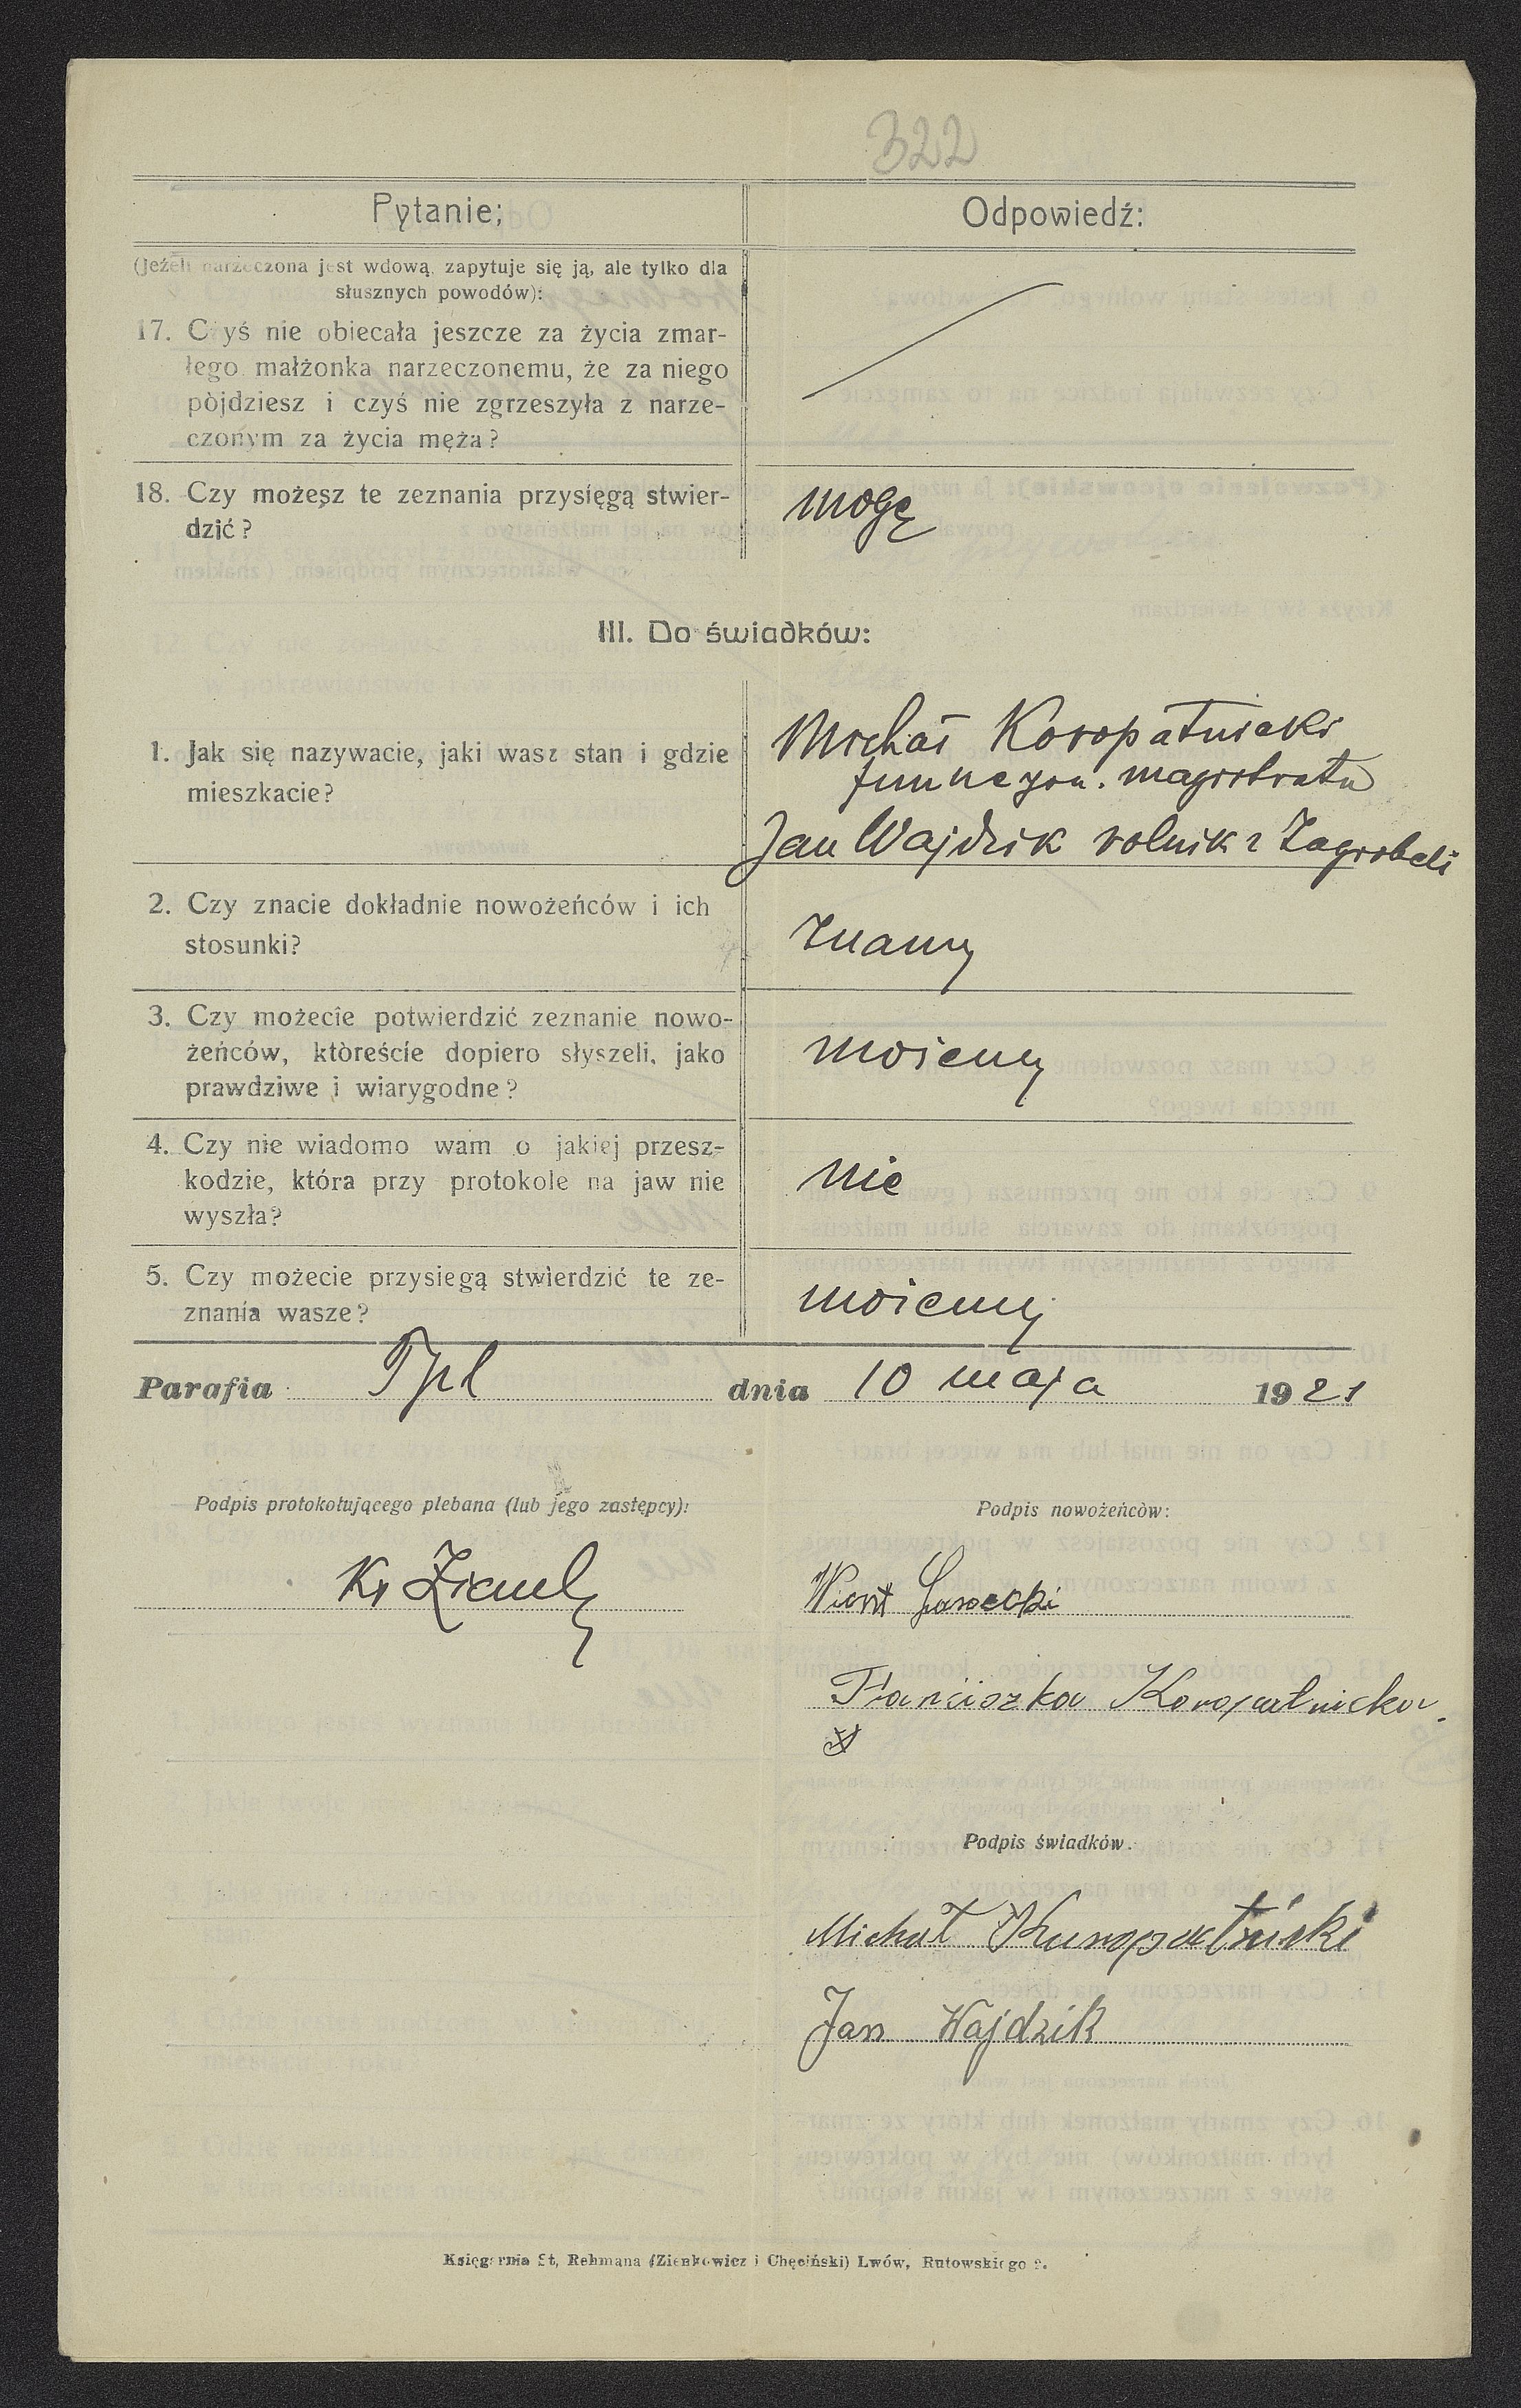 322
Pytanie;
Odpowiedź:
(Jeżeli narzeczona jest wdową, zapytuje się ją, ale tylko dla
słusznych powodów):
17. Czyś nie obiecała jeszcze za życia zmar-
łego małżonka narzeczonemu, że za niego
pòjdziesz i czyś nie zgrzeszyła z narze-
czonym za życia męża?
18. Czy możesz te zeznania przysięgą stwier-
dzić?
mogę
III. Do świadków:
1. Jak się nazywacie, jaki wasz stan i gdzie
mieszkacie?
Michał Koropatnicki
magistratu
Jan Wajdzik rolnik z Zagrobeli
2. Czy znacie dokładnie nowożeńców i ich
stosunki?
Znamy
3. Czy możecie potwierdzić zeznanie nowo-
żeńców, któreście dopiero słyszeli, jako
prawdziwe i wiarygodne?
możemy
4. Czy nie wiadomo wam o jakiej przesz-
kodzie, która przy protokole na jaw nie
wyszła?
nie
5. Czy możecie przysiegą stwierdzić te ze-
znania wasze?
możemy
Parafia Tpl dnia 10 maja 1921
Podpis protokołującego plebana (lub jego zastępcy):
Podpis nowożeńcòw:
Franciszka Koropatnicka.
Podpis świadków.
Michał
Jan Wajdzik
Księgarnia St, Rehmana (Zienkowicz i Chęciński) Lwów, Rutowskiego 9.